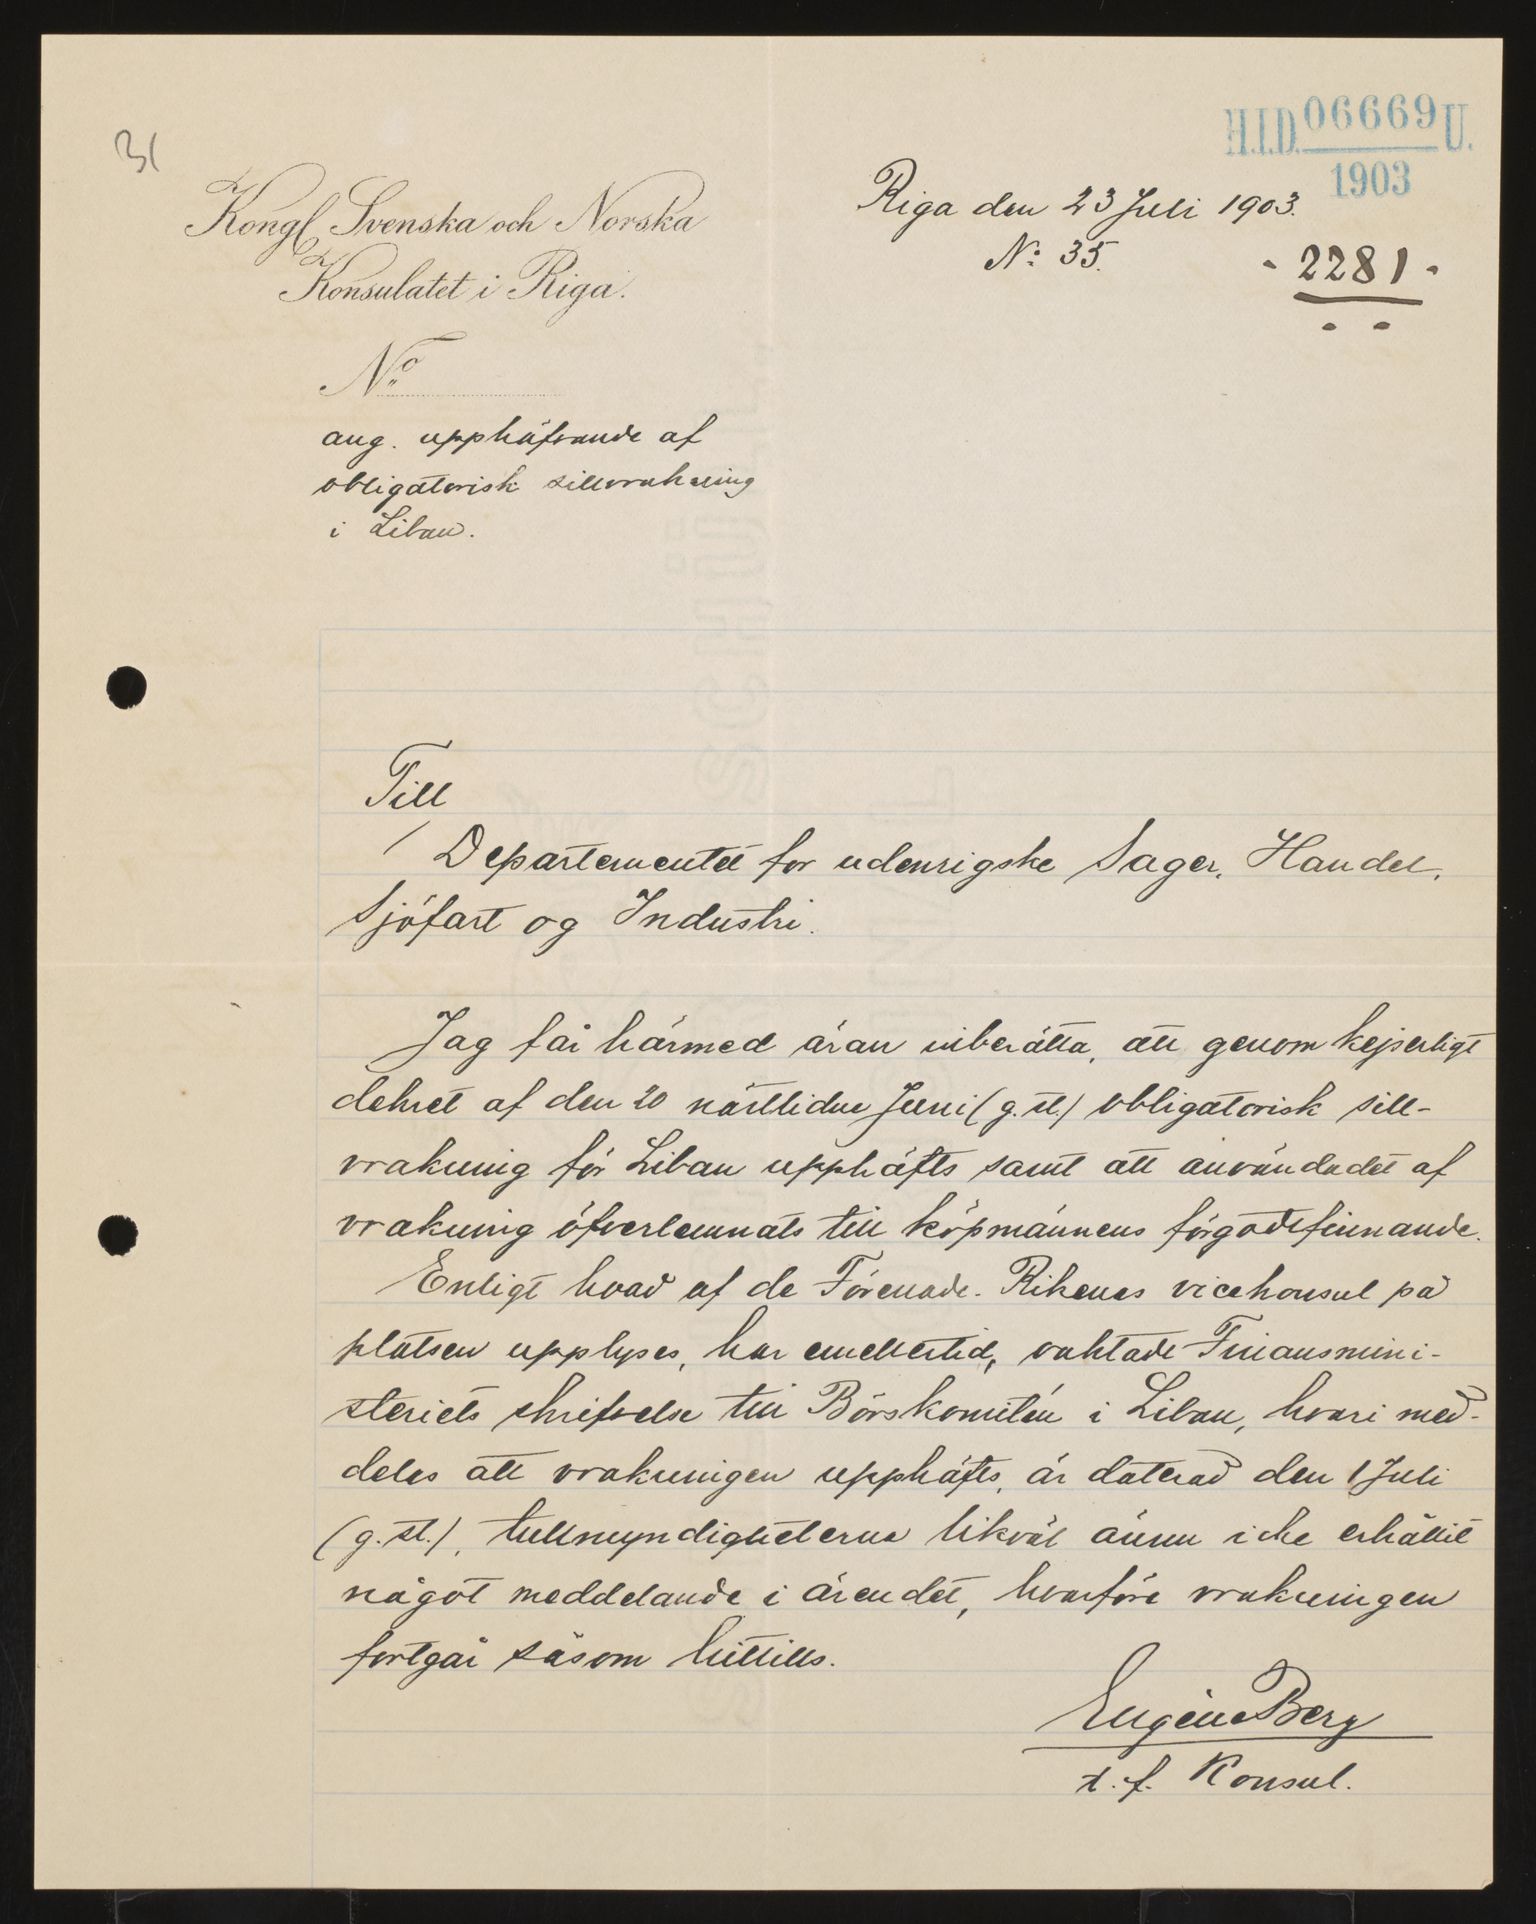 31
H.I.D. 06669 U.
1903
Kongl. Svenska och Norska
Konsulatet i Riga.
No
Riga den 23 Juli 1903.
No: 35.
- 2281 -
ang. upphäfvande af
obligatorisk sillvrakning
i Libau.
Till
Departementet for udenrigske Sager, Handel,
Sjöfart og Industri.
Jag får härmed äran inberätta, att genom kejserligt
dekret af den 20 nästlidne Juni (g. st.) obligatorisk sill-
vrakning för Libau upphäfts samt att användadet af
vrakning öfverlemnats till köpmännens förgodtfinnande.
Enligt hvad af de Förenade Rikenas vicekonsul på
platsen upplyses, har emellertid, oaktadt Finansmini-
steriets skrifvelse till Börskomitén i Libau, hvari med-
delas att vrakningen upphäfts, är daterad den 1 Juli
(g. st.), tullmyndigheterna likväl ännu icke erhållit
något meddelande i ärendet, hvarföre vrakningen
fortgår såsom hittills.
Eugène Berg
t. f. Konsul.